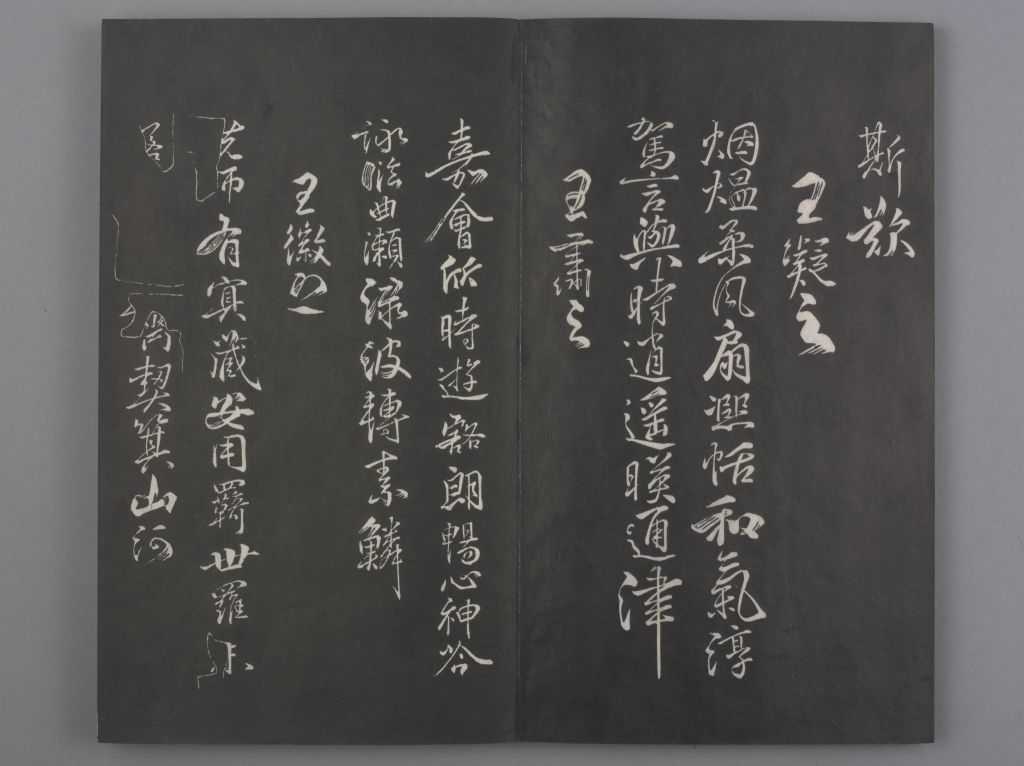 斯歎
王凝之
烟煴柔风扇熈恬和氣淳
駕言興時逍遥暎通津
王肅之
嘉會欣時遊豁朗暢心神吟
詠臨曲瀬渌波轉素鱗
王徽之
先師有冥藏安用羈世羅未
若 契箕山阿